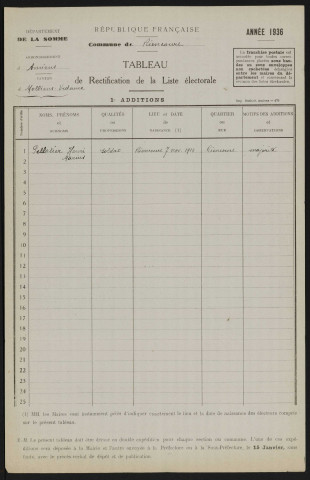 DÉPARTEMENT
DE LA SOMME
RÉPUBLIQUE FRANÇAISE
ANNÉE 1936
Commune de
ARRONDISSEMENT
d'Amiens
TABLEAU
de Rectification de la Liste électorale
Molliens-Vidame
2° ADDITIONS
NOMS, PRÉNOMS
et
SURNOMS
QUALITÉS
ou
PROFESSIONS
LIEU et DATE
de
NAISSANCE (1)
QUARTIER
ou
RUE
MOTIFS DES ADDITIONS
et
OBSERVATIONS
1 Pelletier Henri soldat 7 nov. 1914 majorité
2
3
4
5
6
7
8
9
10
11
12
13
14
15
16
17
18
19
20
21
22
23
24
25
(1) MM. les Maires sont instamment priés d'indiquer exactement le lieu et la date de naissance des électeurs compris
sur le présent tableau.
N. B. Le présent tableau doit être dressé en double expédition pour chaque section de commune. L'une de ces expé-
ditions sera déposée à la Mairie et l'autre envoyée à la Préfecture ou à la Sous-Préfecture, le 15 Janvier, sans
faute avec le procès-verbal de dépôt et de publication.